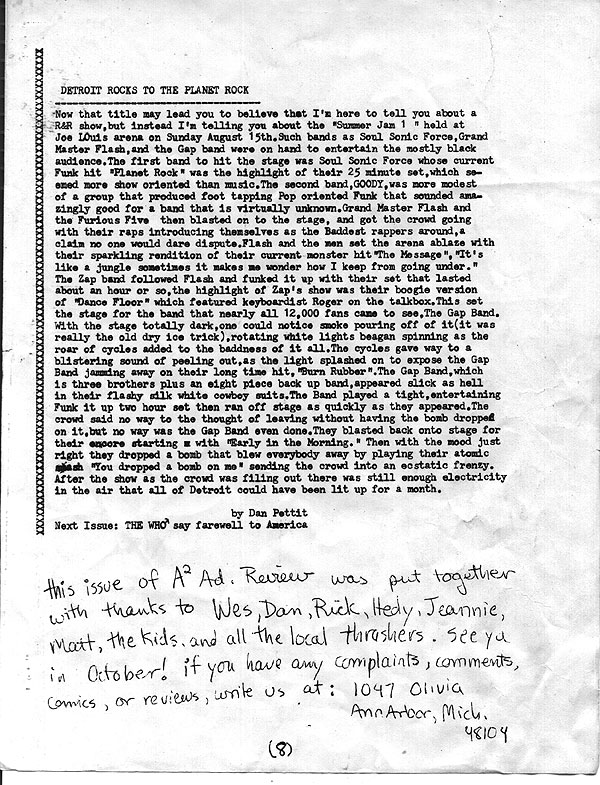 DETROIT ROCKS TO THE PLANET ROCK
Now that title may lead you to believe that I'm here to tell you about a
R&R show,but instead I'm telling you about the "Summer Jam 1 " held at
Joe LOuis arena on Sunday August 15th.Such bands as Soul Sonic Force,Grand
Master Flash,and the Gap band were on hand to entertain the mostly black
audience.The first band to hit the stage was Soul Sonic Force whose current
Funk hit "Planet Rock" was the highlight of their 25 minute set,which se-
emed more show oriented than music.The second band,GOODY,was more modest
of a group that produced foot tapping Pop oriented Funk that sounded ama-
zingly good for a band that is virtually unknown.Grand Master Flash and
the Furious Five  then blasted on to the stage, and got the crowd going
with their raps introducing themselves as the Baddest rappers around,a
claim no one would dare dispute.Flash and the men set the arena ablaze with
their sparkling rendition of their current monster hit"The Message","It's
like a jungle sometimes it makes me wonder how I keep from going under."
The Zap band followed Flash and funked it up with their set that lasted
about an hour or so,the highlight of Zap's show was their boogie version
of "Dance Floor" which featured keyboardist Roger on the talkbox.This set
the stage for the band that nearly all 12,000 fans came to see,The Gap Band.
With the stage totally dark,one could notice smoke pouring off of it(it was
really the old dry ice trick),rotating white lights beagan spinning as the
roar of cycles added to the baddness of it all.The cycles gave way to a
blistering sound of peeling out,as the light splashed on to expose the Gap
Band jamming away on their long time hit,"Burn Rubber".The Gap Band,which
is three brothers plus an eight piece back up band,appeared slick as hell
in their flashy silk white cowboy suits.The Band played a tight,entertaining
Funk it up two hour set then ran off stage as quickly as they appeared.The
crowd said no way to the thought of leaving without having the bomb dropped
on it,but no way was the Gap Band even done.They blasted back onto stage for
their encore starting with "Early in the Morning." Then with the mood just
right they dropped a bomb that blew everybody away by playing their atomic
smash "You dropped a bomb on me" sending the crowd into an ecstatic frenzy.
After the show as the crowd was filing out there was still enough electricity
in the air that all of Detroit could have been lit up for a month.
by Dan Pettit
Next Issue: THE WHO say farewell to America
this issue of A² Ad. Review was put together
with thanks to Wes, Dan, Rick, Hedy, Jeannie,
Matt, the Kids, and all the local thrashers. See ya
in October! if you have any complaints, comments,
comics, or reviews, write us at: 1047 Olivia
Ann Arbor, Mich.
48104
(8)